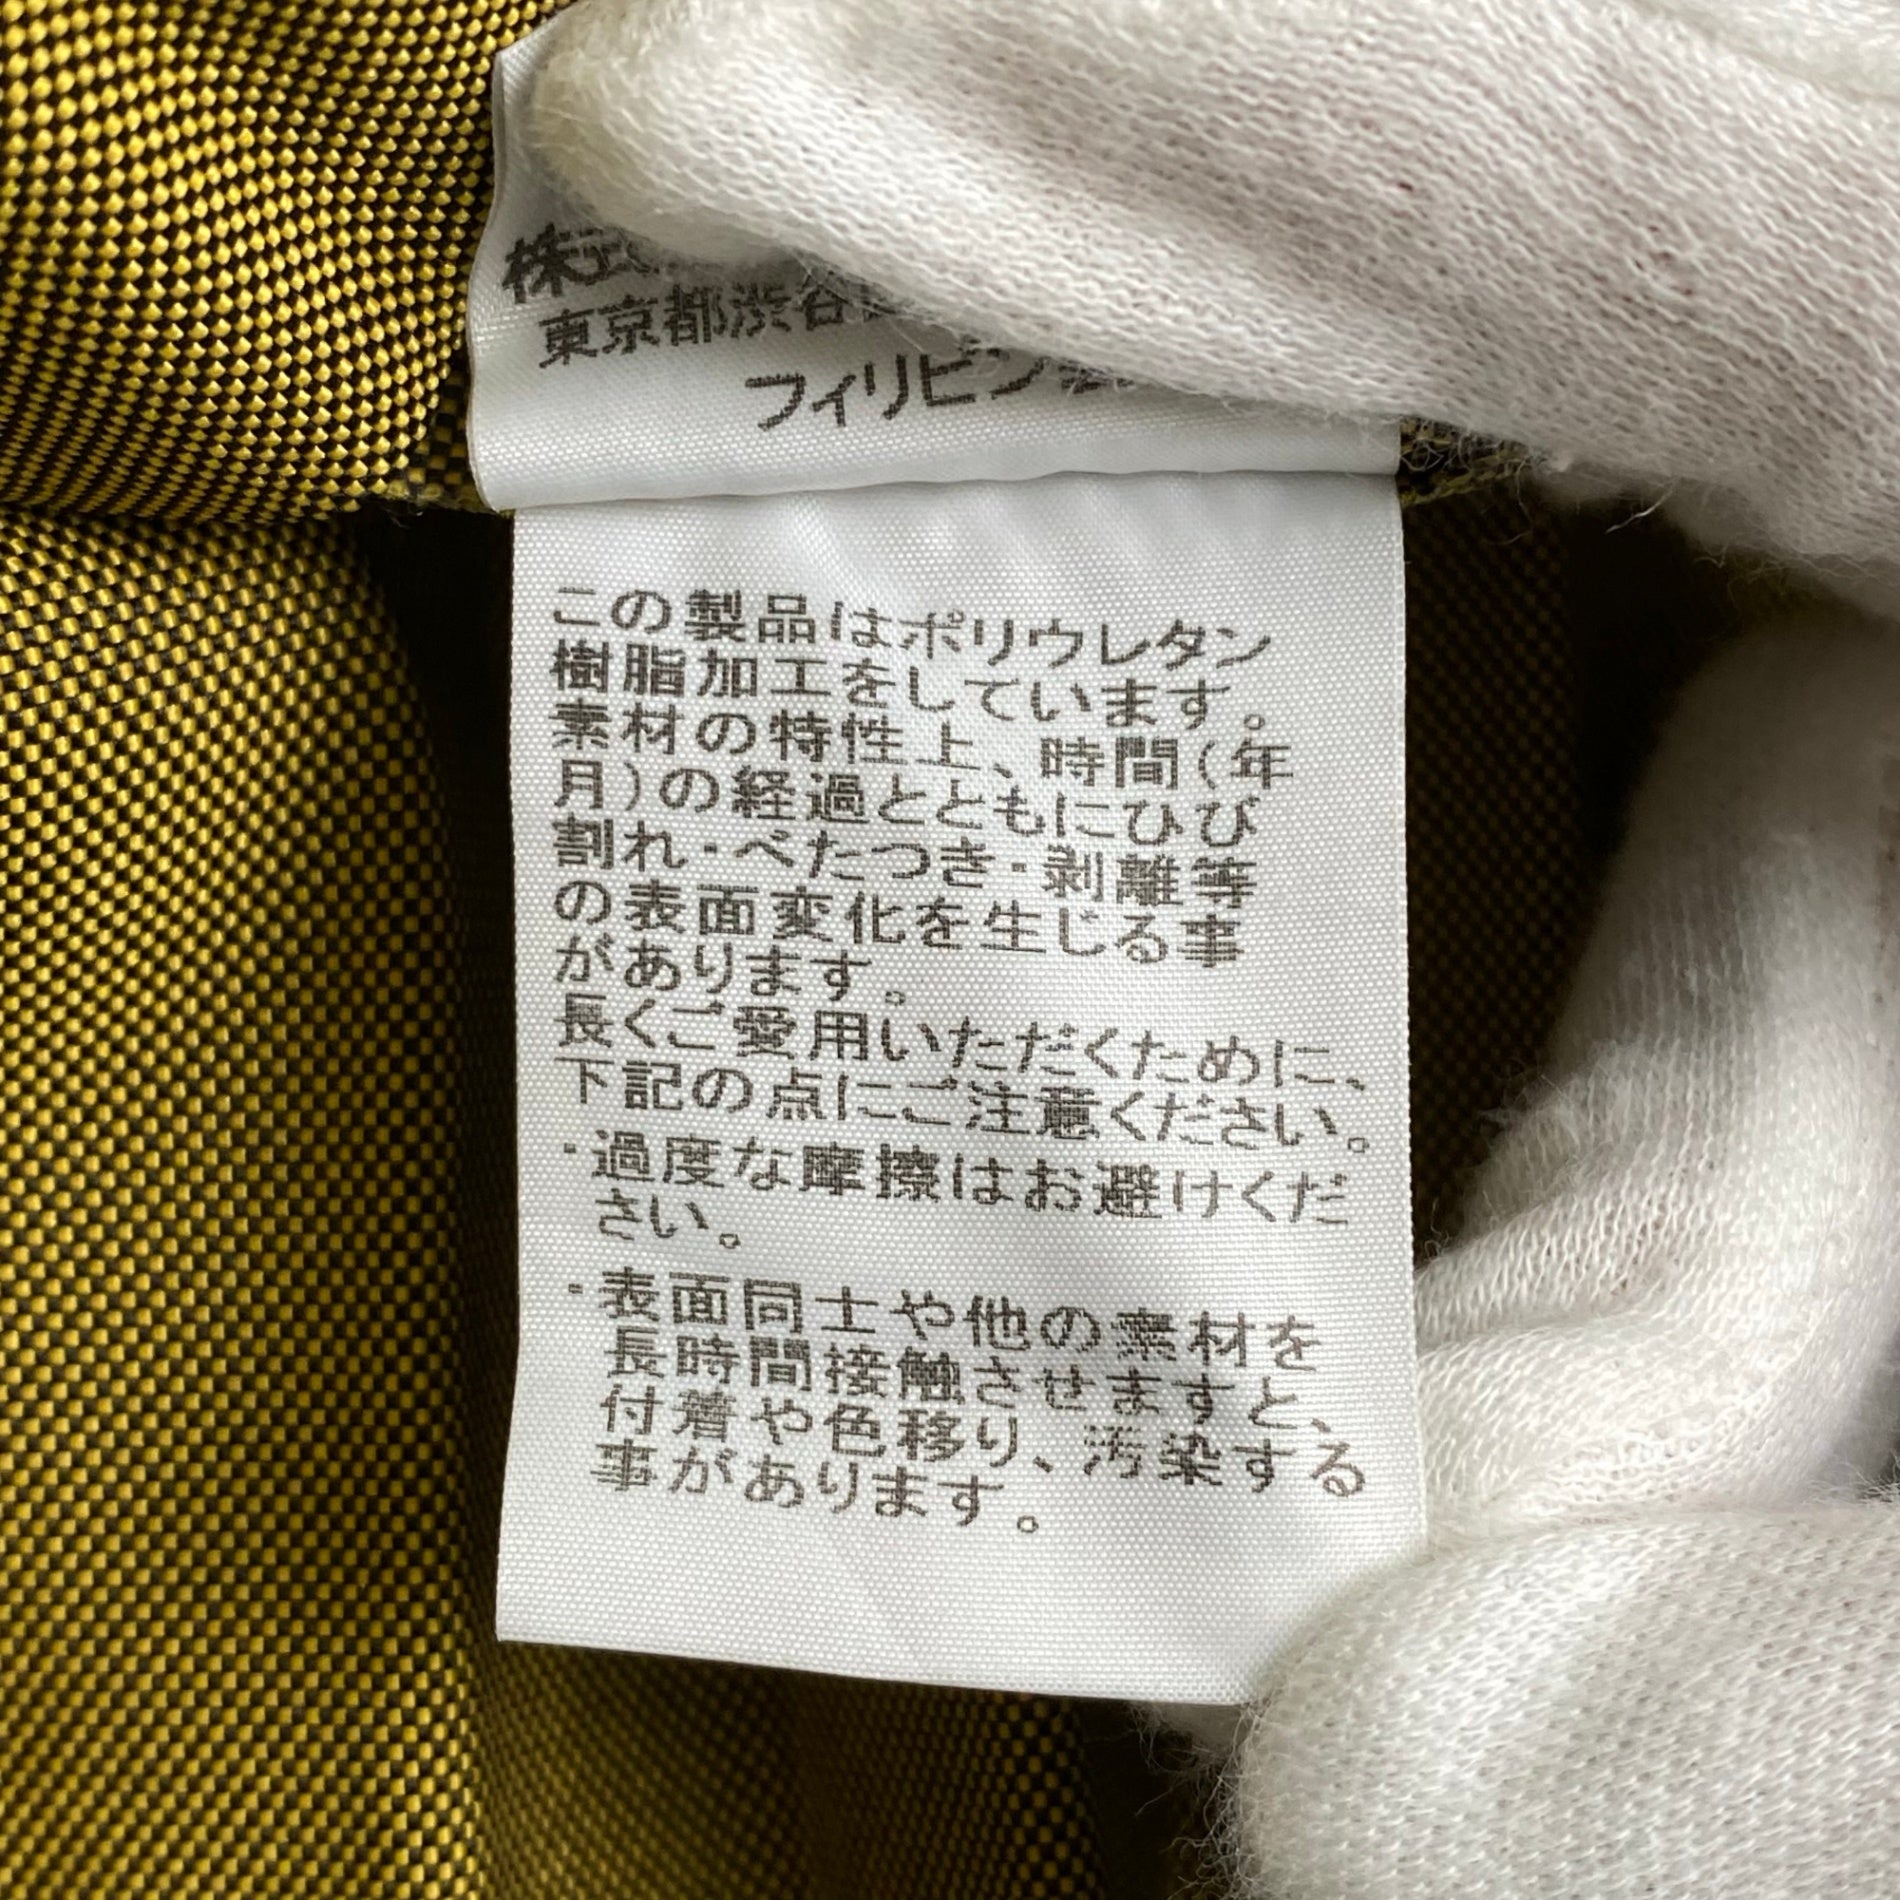 株式
東京都渋谷
フィリピン
この製品はポリウレタン
樹脂加工をしています。
素材の特性上、時間(年
月)の経過とともにひび
割れ・べたつき・剥離等
の表面変化を生じる事
があります。
長くご愛用いただくために、
下記の点にご注意ください。
・過度な摩擦はお避けくだ
さい。
・表面同士や他の素材を
長時間接触させますと、
付着や色移り、汚染する
事があります。